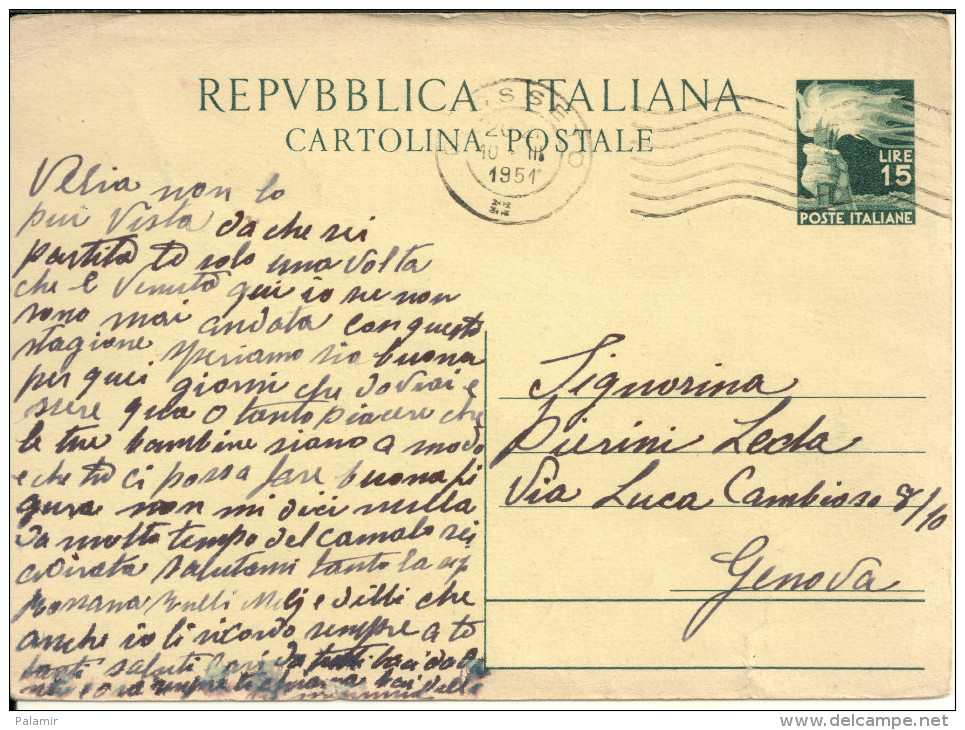 REPVBBLICA ITALIANA
CARTOLINA POSTALE
10 - III
1951
LIRE
15
POSTE ITALIANE
non lo
più vista da che sei
partita tu solo una volta
che è venuta qui io ne non
sono mai andata con questa
stagione speriamo sia buona
per quei giorni che dovrai e
ssere qua o tanto piacere che
le tue bambine siano a modo
e che tu ci possa fare buona fi
gura non mi dici nulla
da molto tempo del camalo sei
adirata salutami tanto la
Rossana che
anche io li ricordo sempre a te
tanti saluti cari da tutti baci da
Signorina
Pierini Leda
Via Luca Cambioso 8/10
Genova
Palamir
delcampe.net